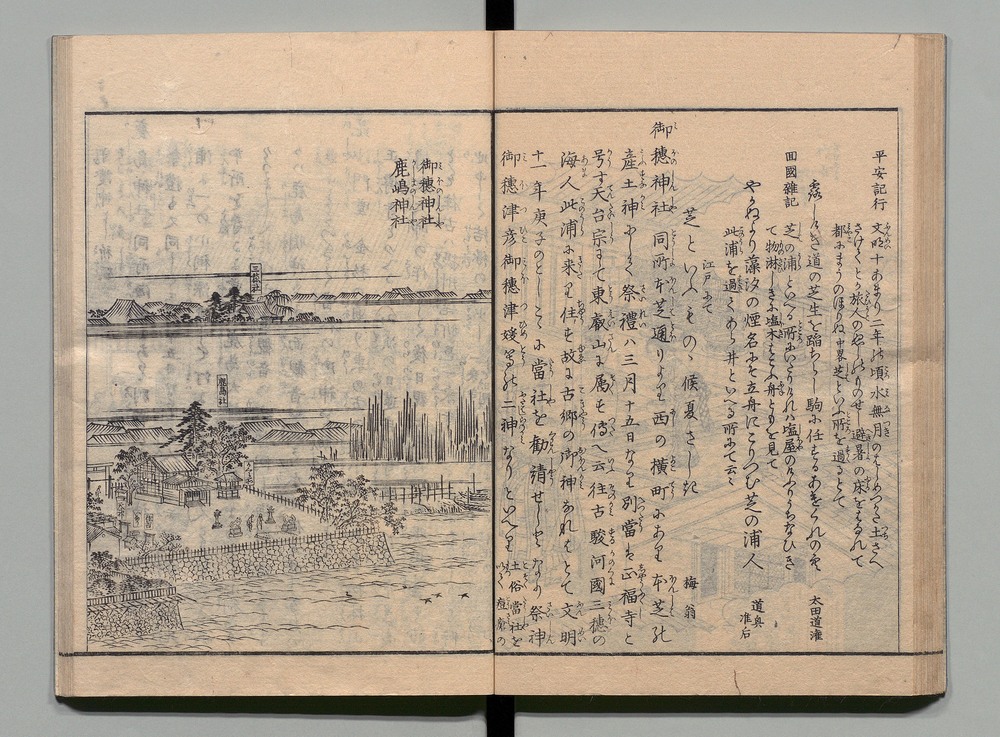 平安記行
文明十あまり二年の頃水無月のはじめつかた土さへ
さけてとか旅人のやどりのせ避暑の床をはなれて
都にまうのぼりぬ中畧芝といふ所を過るとて
露しげき道の芝生を踏ちらし駒に任するあけくれの空
太田道灌
回國雜記
芝の浦といへる所にいたりければ塩屋のけふりうちなびき
て物淋しきに塩木はこぶ舟どもを見て
やかぬより藻汐の煙名にぞ立舟にこりつむ芝の浦人
道興准后
此浦を過てあら井といへる所にて云々
江戸にて
芝といふものゝ候夏ざしき
梅翁
御穂神社 同所本芝通りより西の横町にあり本芝の
産土神にして祭禮ハ三月十五日なり別當を正福寺と
号す天台宗にて東叡山に属す傳へ云往古駿河國三穂の
海人此浦に来り住す故に古郷の御神なればとて文明
十一年庚子のとしこゝに當社を勧請せしとなり祭神
御穂津彦御穂津媛等の二神なりといへり
土俗當社を
御穂神社
鹿嶋神社
三穂社
鹿島社